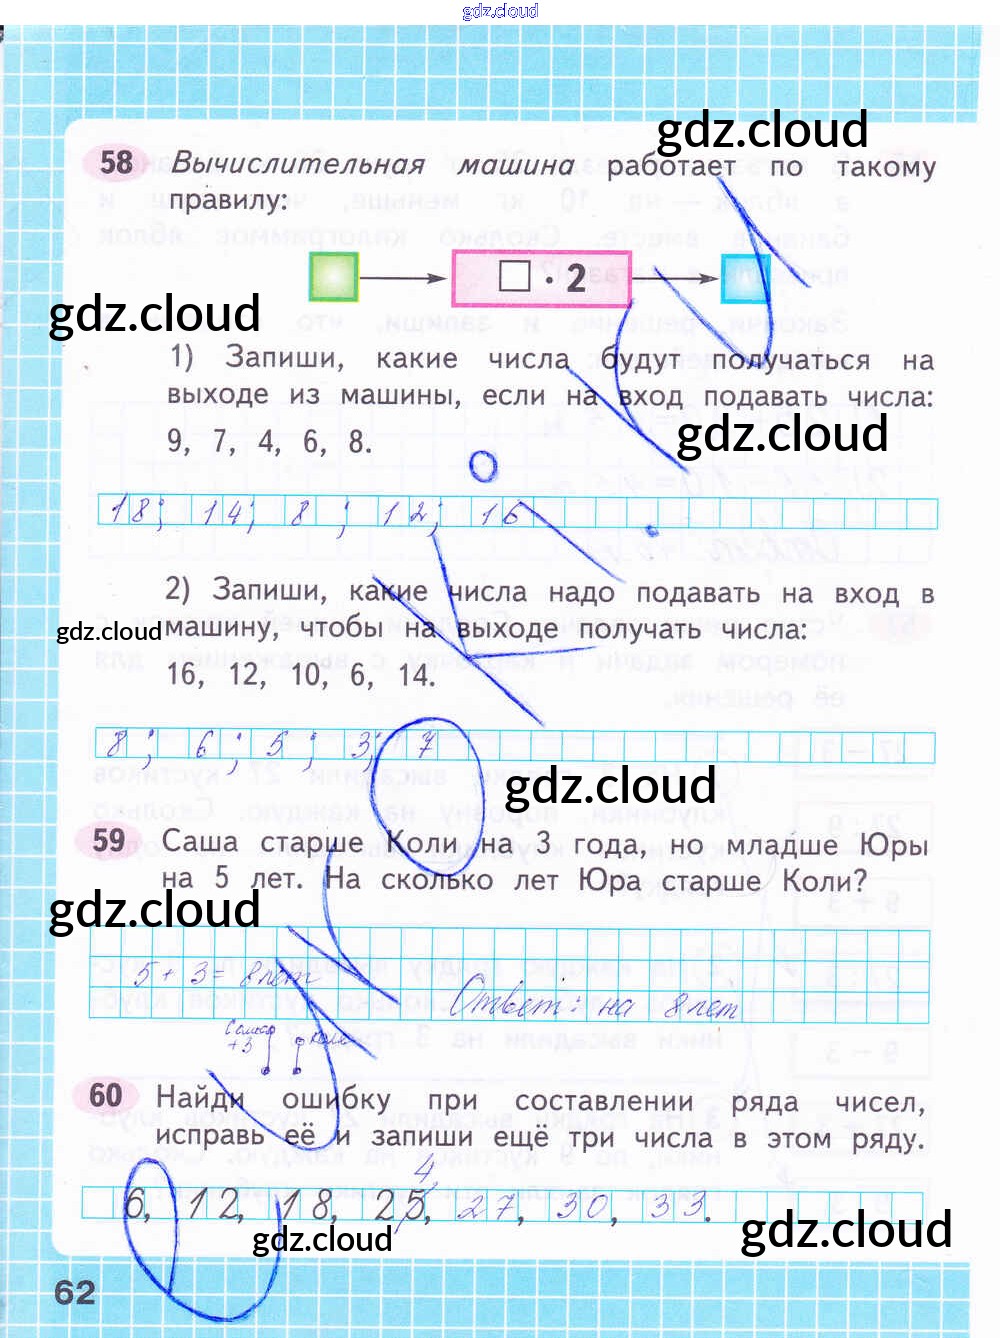 gdz.cloud
gdz.cloud
58 Вычислительная машина работает по такому
правилу:
□ · 2
gdz.cloud
1) Запиши, какие числа будут получаться на
выходе из машины, если на вход подавать числа:
9, 7, 4, 6, 8.
gdz.cloud
18; 14; 8; 12; 16
2) Запиши, какие числа надо подавать на вход в
машину, чтобы на выходе получать числа:
gdz.cloud
16, 12, 10, 6, 14.
8; 6; 5; 3; 7
gdz.cloud
59 Саша старше Коли на 3 года, но младше Юры
на 5 лет. На сколько лет Юра старше Коли?
gdz.cloud
5+3=8 лет
Ответ: на 8 лет
Саша Коля
+3
60 Найди ошибку при составлении ряда чисел,
исправь её и запиши ещё три числа в этом ряду.
4
6, 12, 18, 25, 27, 30, 33.
gdz.cloud
gdz.cloud
62